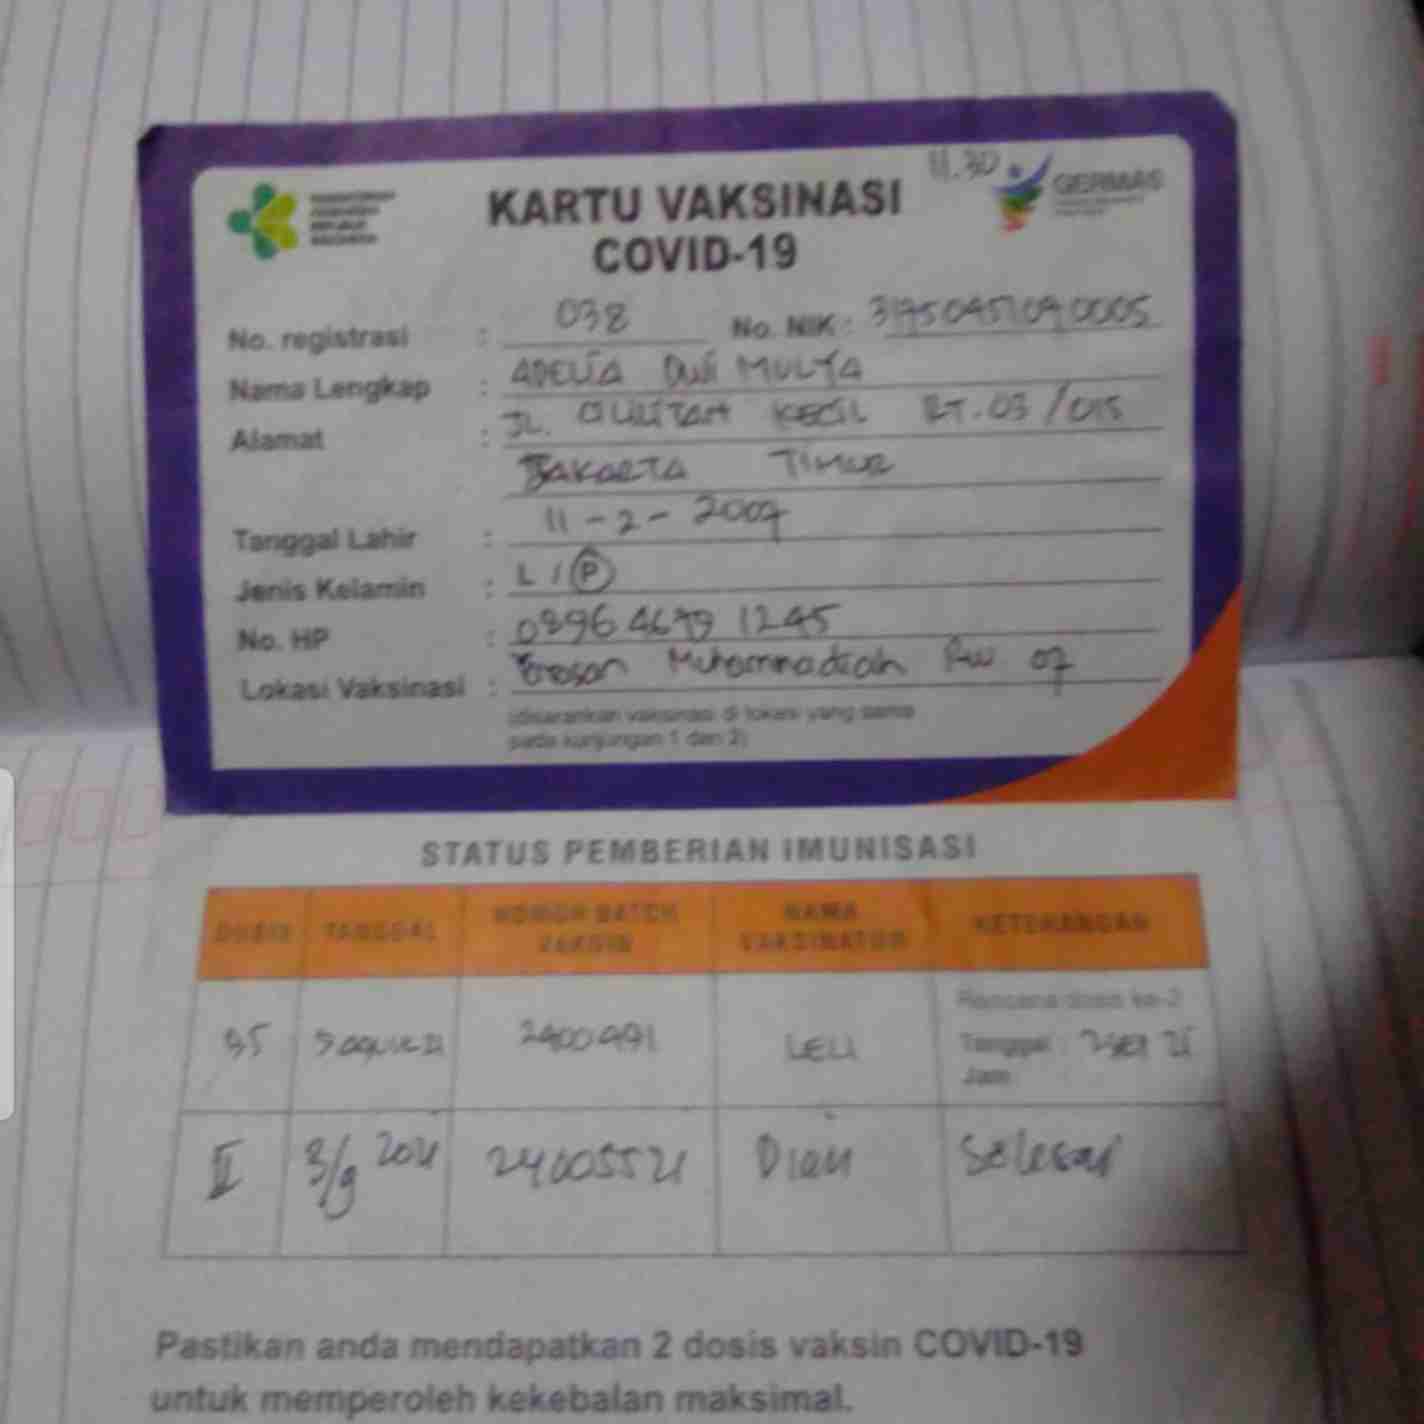 11.30
KEMENTERIAN KESEHATAN REPUBLIK INDONESIA
GERMAS
KARTU VAKSINASI
COVID-19
No. registrasi : 038 No. NIK :
Nama Lengkap : ADELIA DWI MULYA
Alamat : JL. CILILITAN KECIL RT.03/015
JAKARTA TIMUR
Tanggal Lahir : 11-2-2007
Jenis Kelamin : L / P
No. HP :
Lokasi Vaksinasi : Muhammadiah RW 07
(disarankan vaksinasi di lokasi yang sama
pada kunjungan 1 dan 2)
STATUS PEMBERIAN IMUNISASI
DOSIS TANGGAL NOMOR BATCH VAKSIN NAMA VAKSINATOR KETERANGAN
Rencana dosis ke-2
LELI Tanggal :
Jam
II 3/9 2021 Dian Selesai
Pastikan anda mendapatkan 2 dosis vaksin COVID-19
untuk memperoleh kekebalan maksimal.